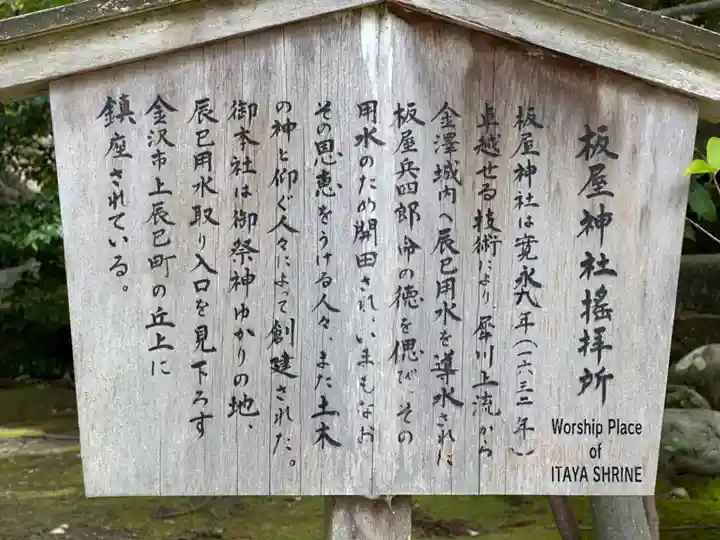 板屋神社搖拝所
板屋神社は寛永九年(一六三二年)
卓越せる技術により、犀川上流から
金澤城内へ辰巳用水を導水された
板屋兵四郎命の徳を偲び、その
用水のため開田され、いまもなお
その恩恵をうける人々、また土木
の神と仰ぐ人々によって創建された。
御本社は御祭神ゆかりの地、
辰巳用水取り入口を見下ろす
金沢市上辰巳町の丘上に
鎮座されている。
Worship Place
of
ITAYA SHRINE